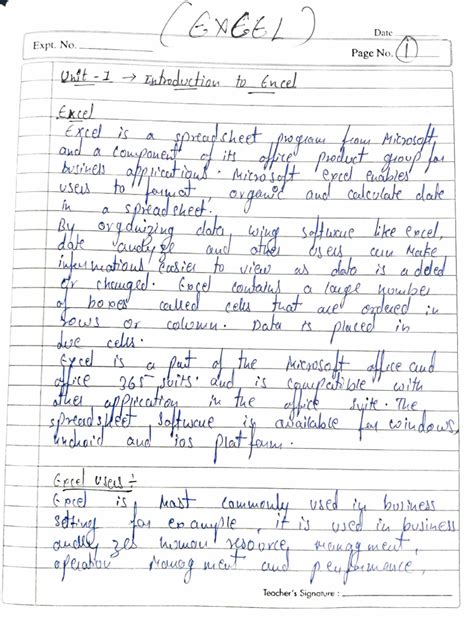 (EXCEL)
Date
Expt. No.
Page No. 1
Unit - 1 → Introduction to Excel
Excel
Excel is a spreadsheet program from Microsoft
and a component of its office product group for
business applications. Microsoft excel enables
users to format, organic and calculate date
in a spreadsheet.
By orgdnizing data, wing softwcue like excel,
date analyze and other users can make
informations easier to view as data is added
or changed. Excel contains a large number
of boxes called cells that are ordered in
rows or column. Data is placed in
cells.
Excel is a part of the Microsoft office and
office 365 suits. and is compatible with
other application in the office suite. The
spreadsheet softwcue is available for windows,
android and ios platform.
Excel users :-
Excel is most commonly used in business
setting for example, it is used in business
human resource managment,
operation managment and performance,
Teacher's Signature :